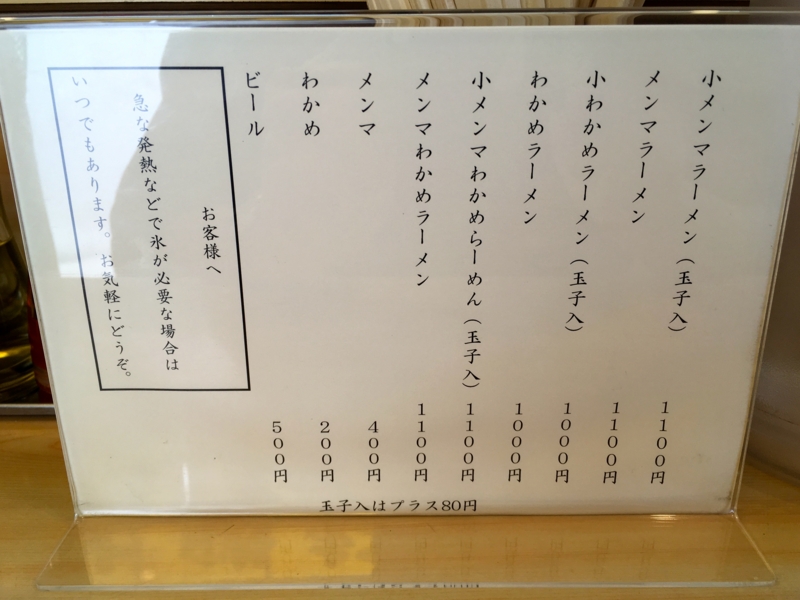 小メンマラーメン（玉子入） 1100円
メンマラーメン 1100円
小わかめラーメン（玉子入） 1000円
わかめラーメン 1000円
小メンマわかめらーめん（玉子入） 1100円
メンマわかめラーメン 1100円
メンマ 400円
わかめ 200円
ビール 500円
お客様へ
急な発熱などで氷が必要な場合は
いつでもあります。お気軽にどうぞ。
玉子入はプラス80円